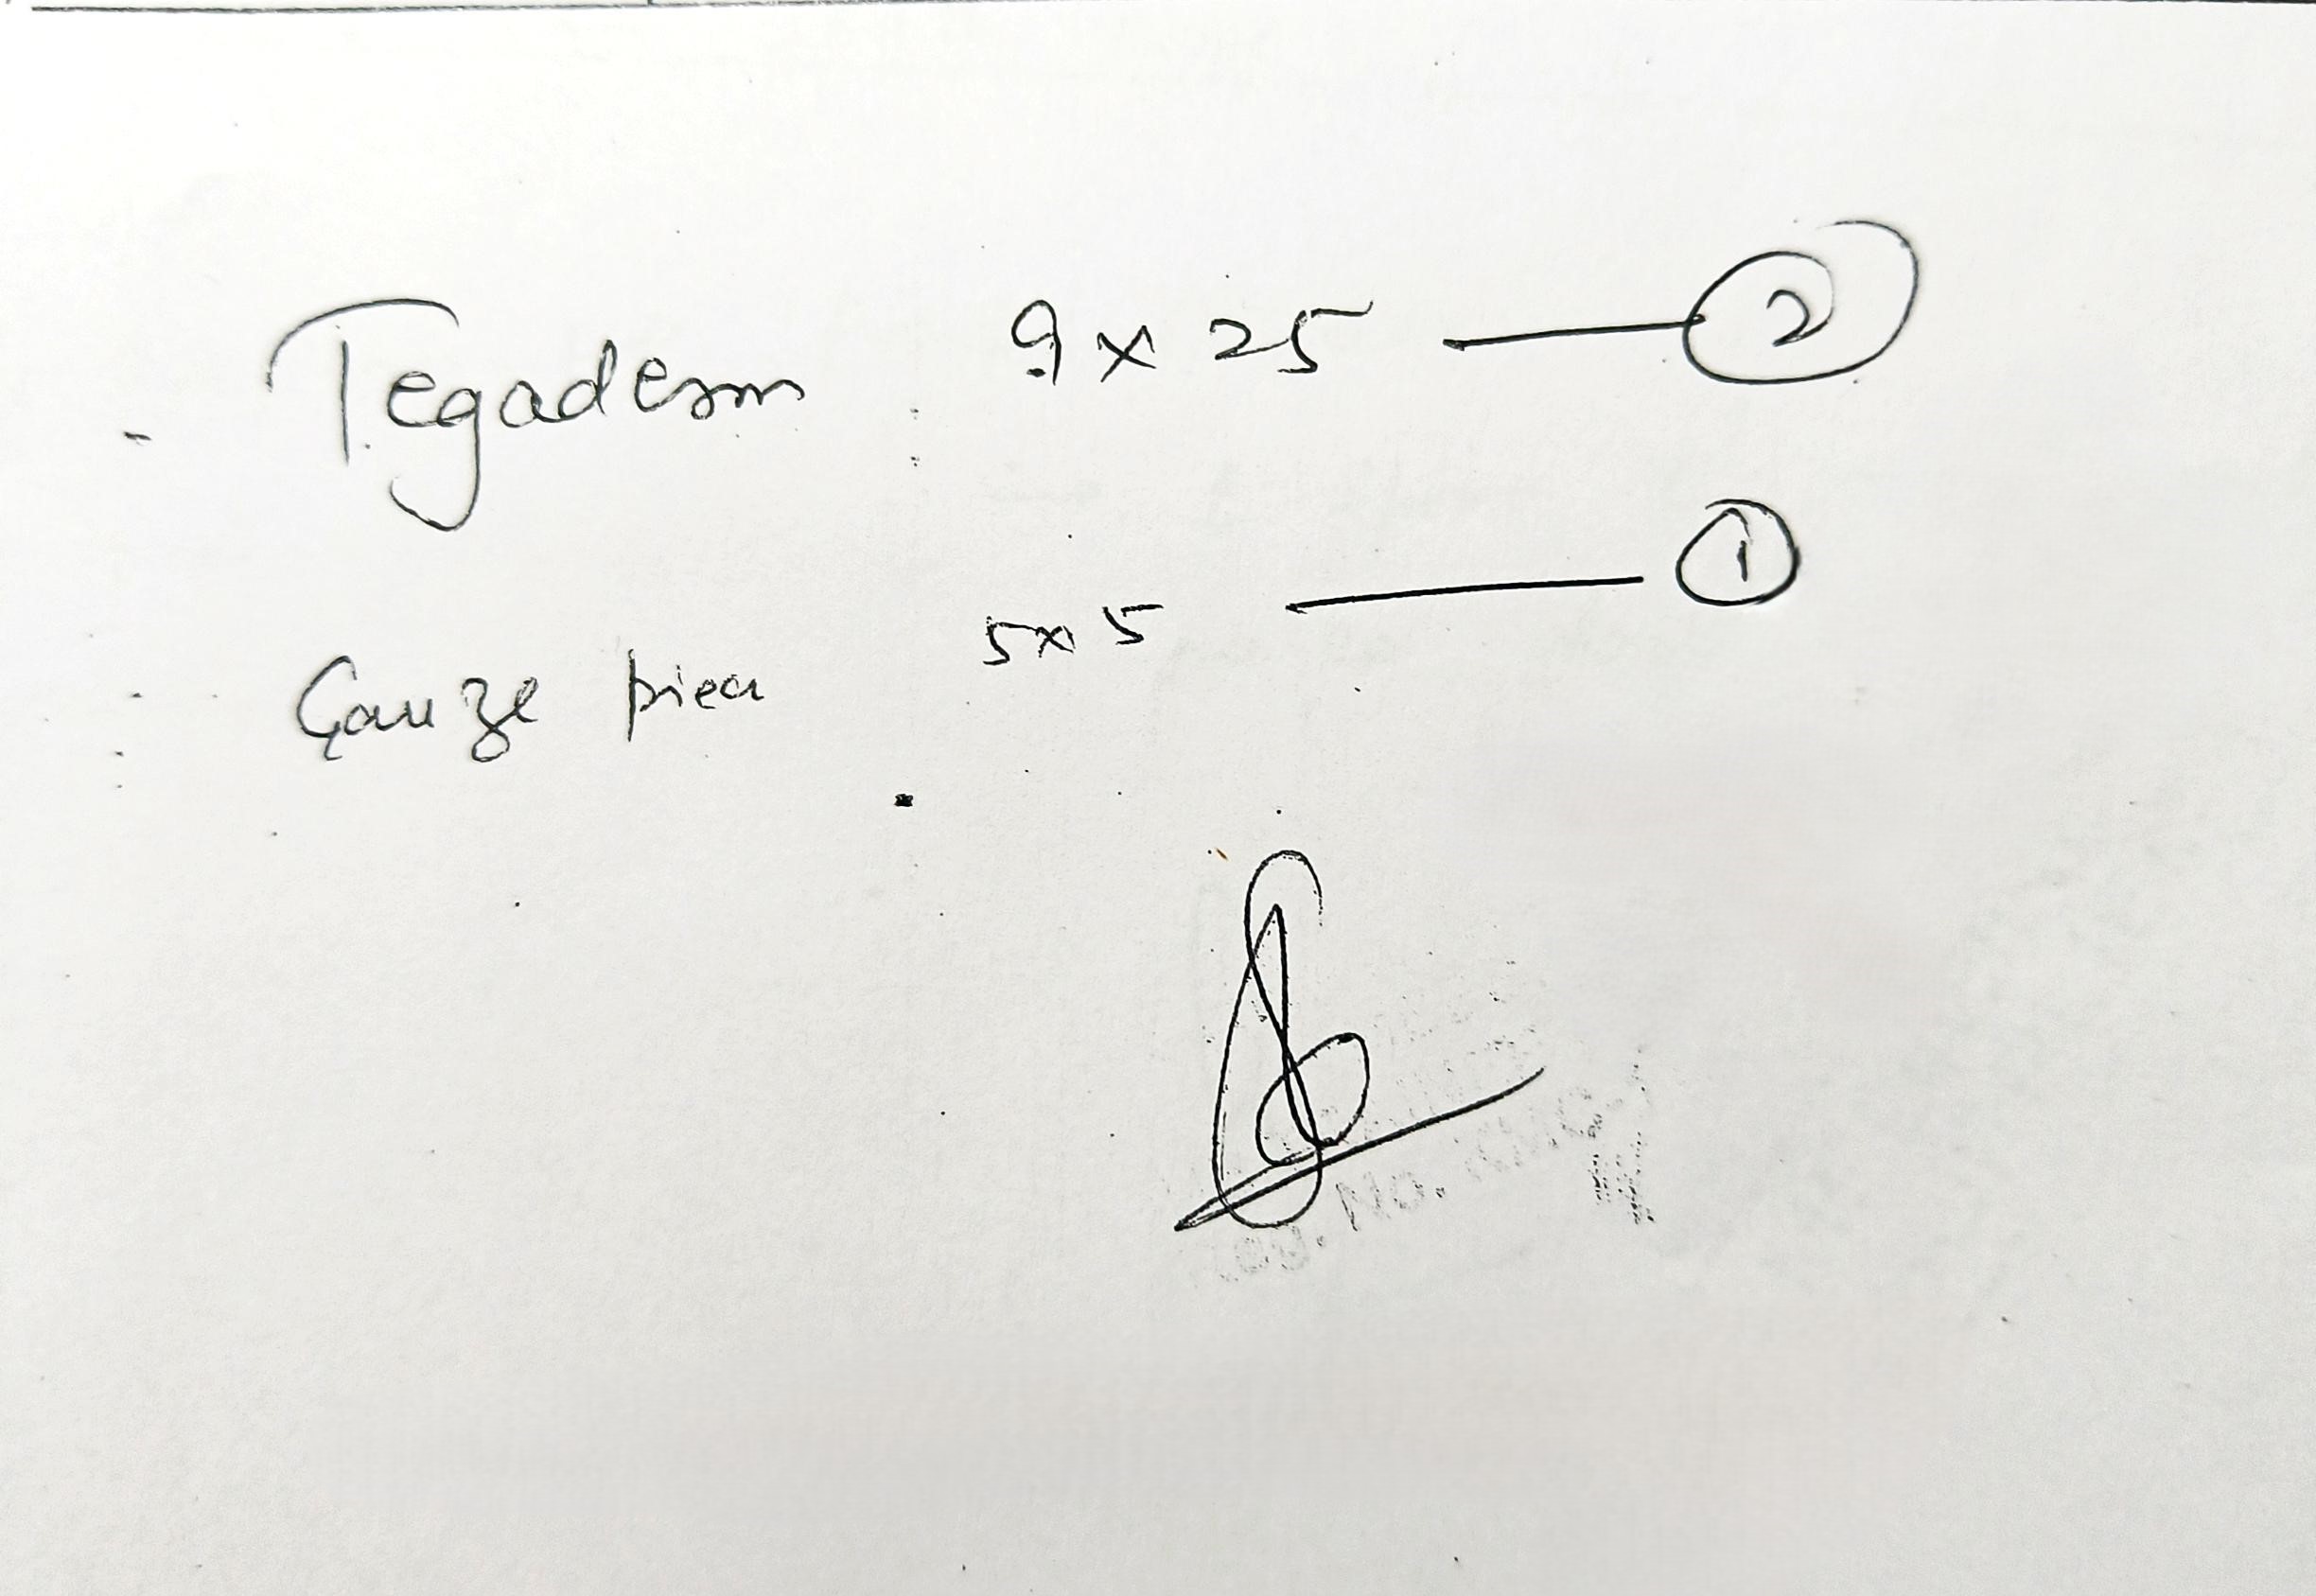 Tegaderm 9 x 25 — 2
Gauze piece 5 x 5 — 1